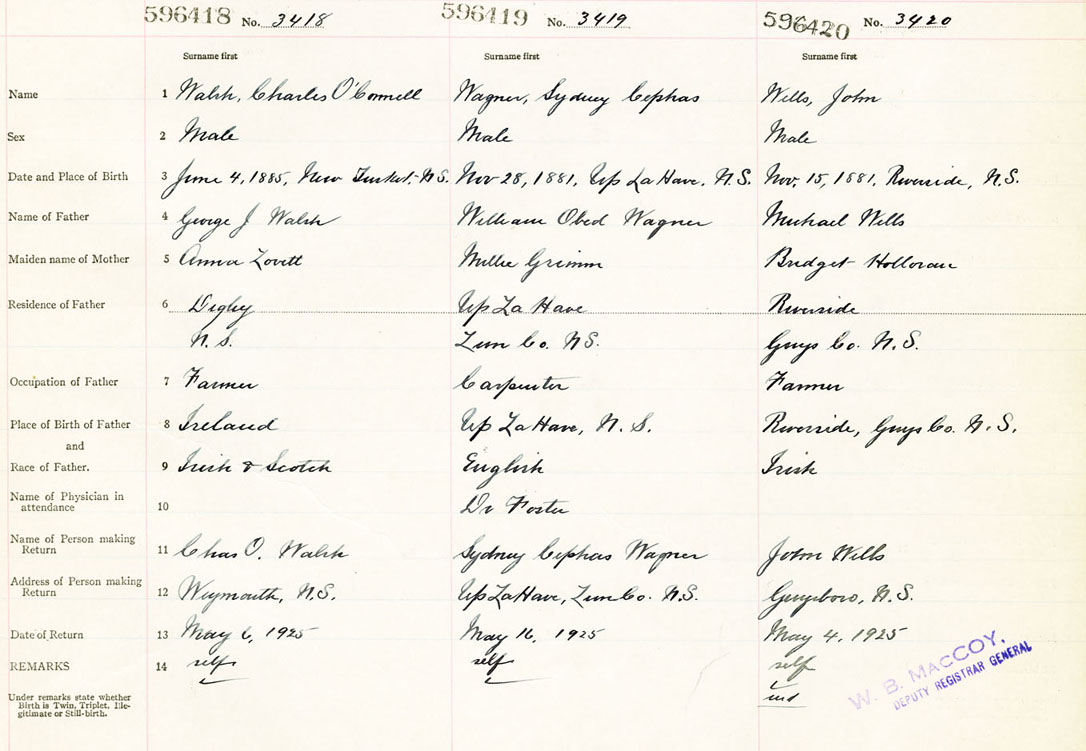 596418 No. 3418 596419 No. 3419 596420 No. 3420
Surname first Surname first Surname first
Name 1 Walsh, Charles O'Connell Wagner, Sydney Cephas Wills, John
Sex 2 Male Male Male
Date and Place of Birth 3 June 4, 1885, New Tusket, N.S. Nov 28, 1881, Up LaHave, N.S. Nov. 15, 1881, Riverside, N.S.
Name of Father 4 George J Walsh William Obed Wagner Michael Wills
Maiden name of Mother 5 Anna Lovitt Millie Grimm Bridget Holloran
Residence of Father 6 Digby Up La Have Riverside
N.S. Lun Co. NS. Guys Co. N.S.
Occupation of Father 7 Farmer Carpenter Farmer
Place of Birth of Father 8 Ireland Up LaHave, N.S. Riverside, Guys Co. N.S.
and
Race of Father. 9 Irish & Scotch English Irish
Name of Physician in
attendance 10 Dr Foster
Name of Person making
Return 11 Chas O. Walsh Sydney Cephas Wagner John Wills
Address of Person making
Return 12 Weymouth, N.S. Up LaHave, Lun Co. N.S. Guysboro, N.S.
Date of Return 13 May 6, 1925 May 16, 1925 May 4, 1925
REMARKS 14 self self self
Under remarks state whether
Birth is Twin, Triplet, Ille-
gitimate or Still-birth.
ind
W. B. MacCOY,
DEPUTY REGISTRAR GENERAL